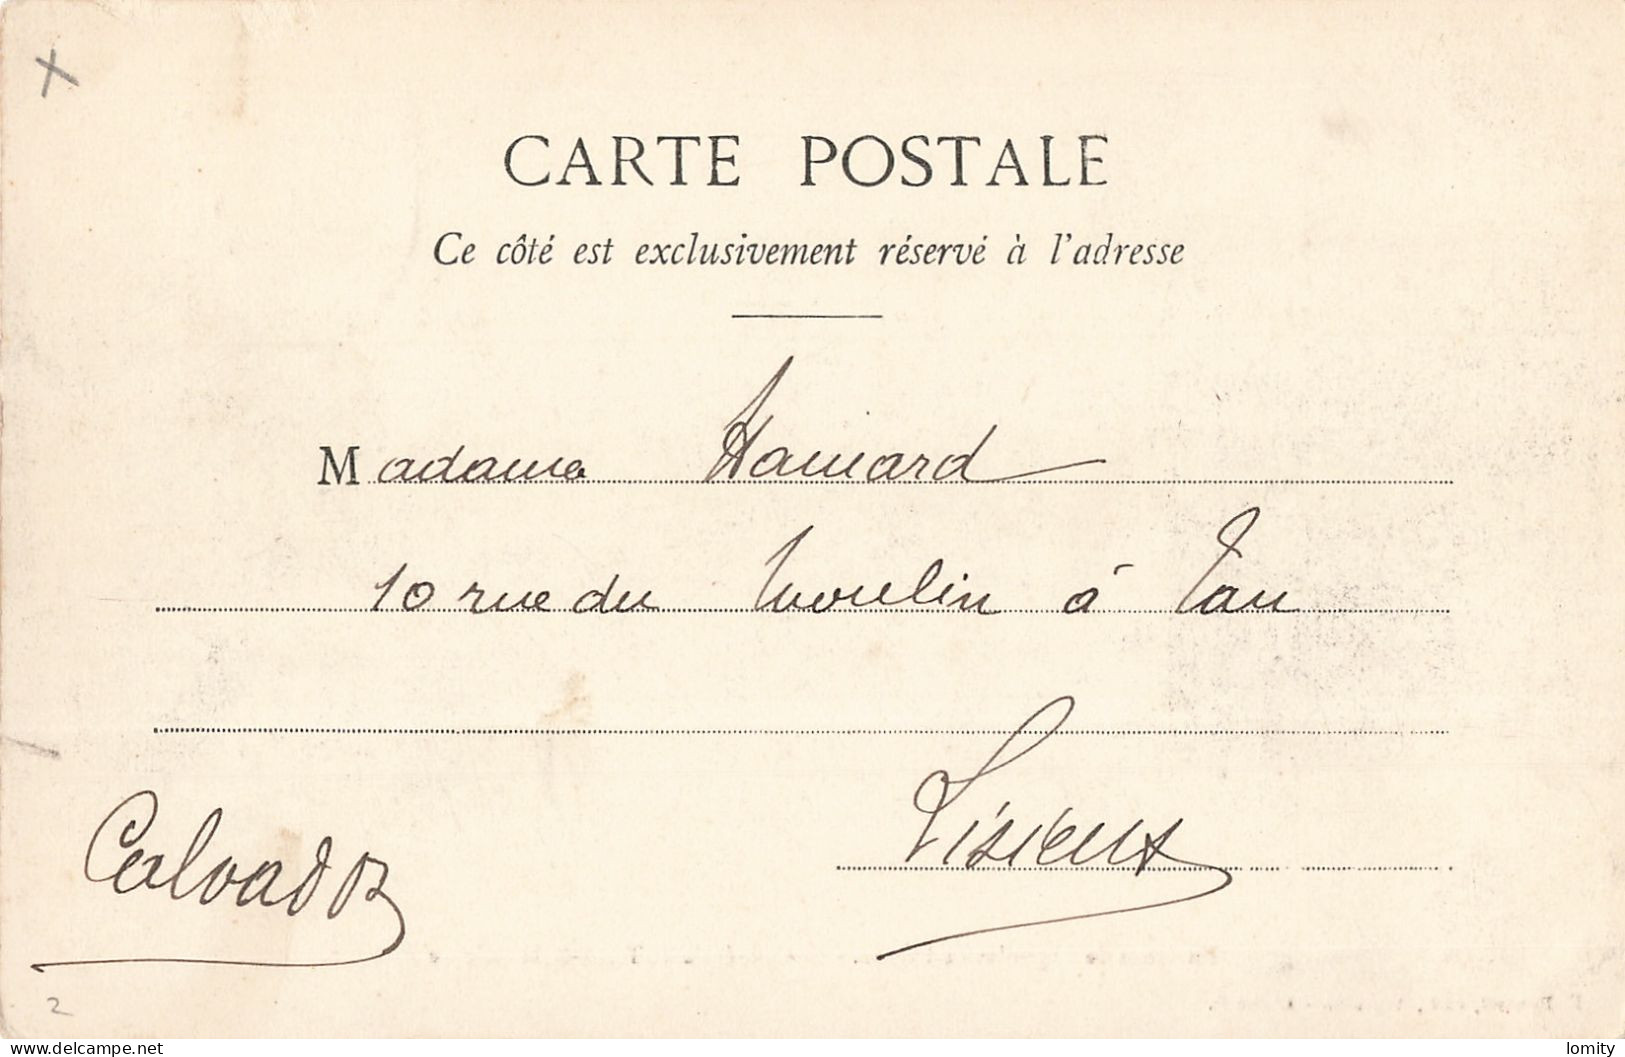 CARTE POSTALE
Ce côté est exclusivement réservé à l'adresse
Madame Hamard
10 rue du Moulin à Tan
Lisieux
Calvados
2
delcampe.net
lomity